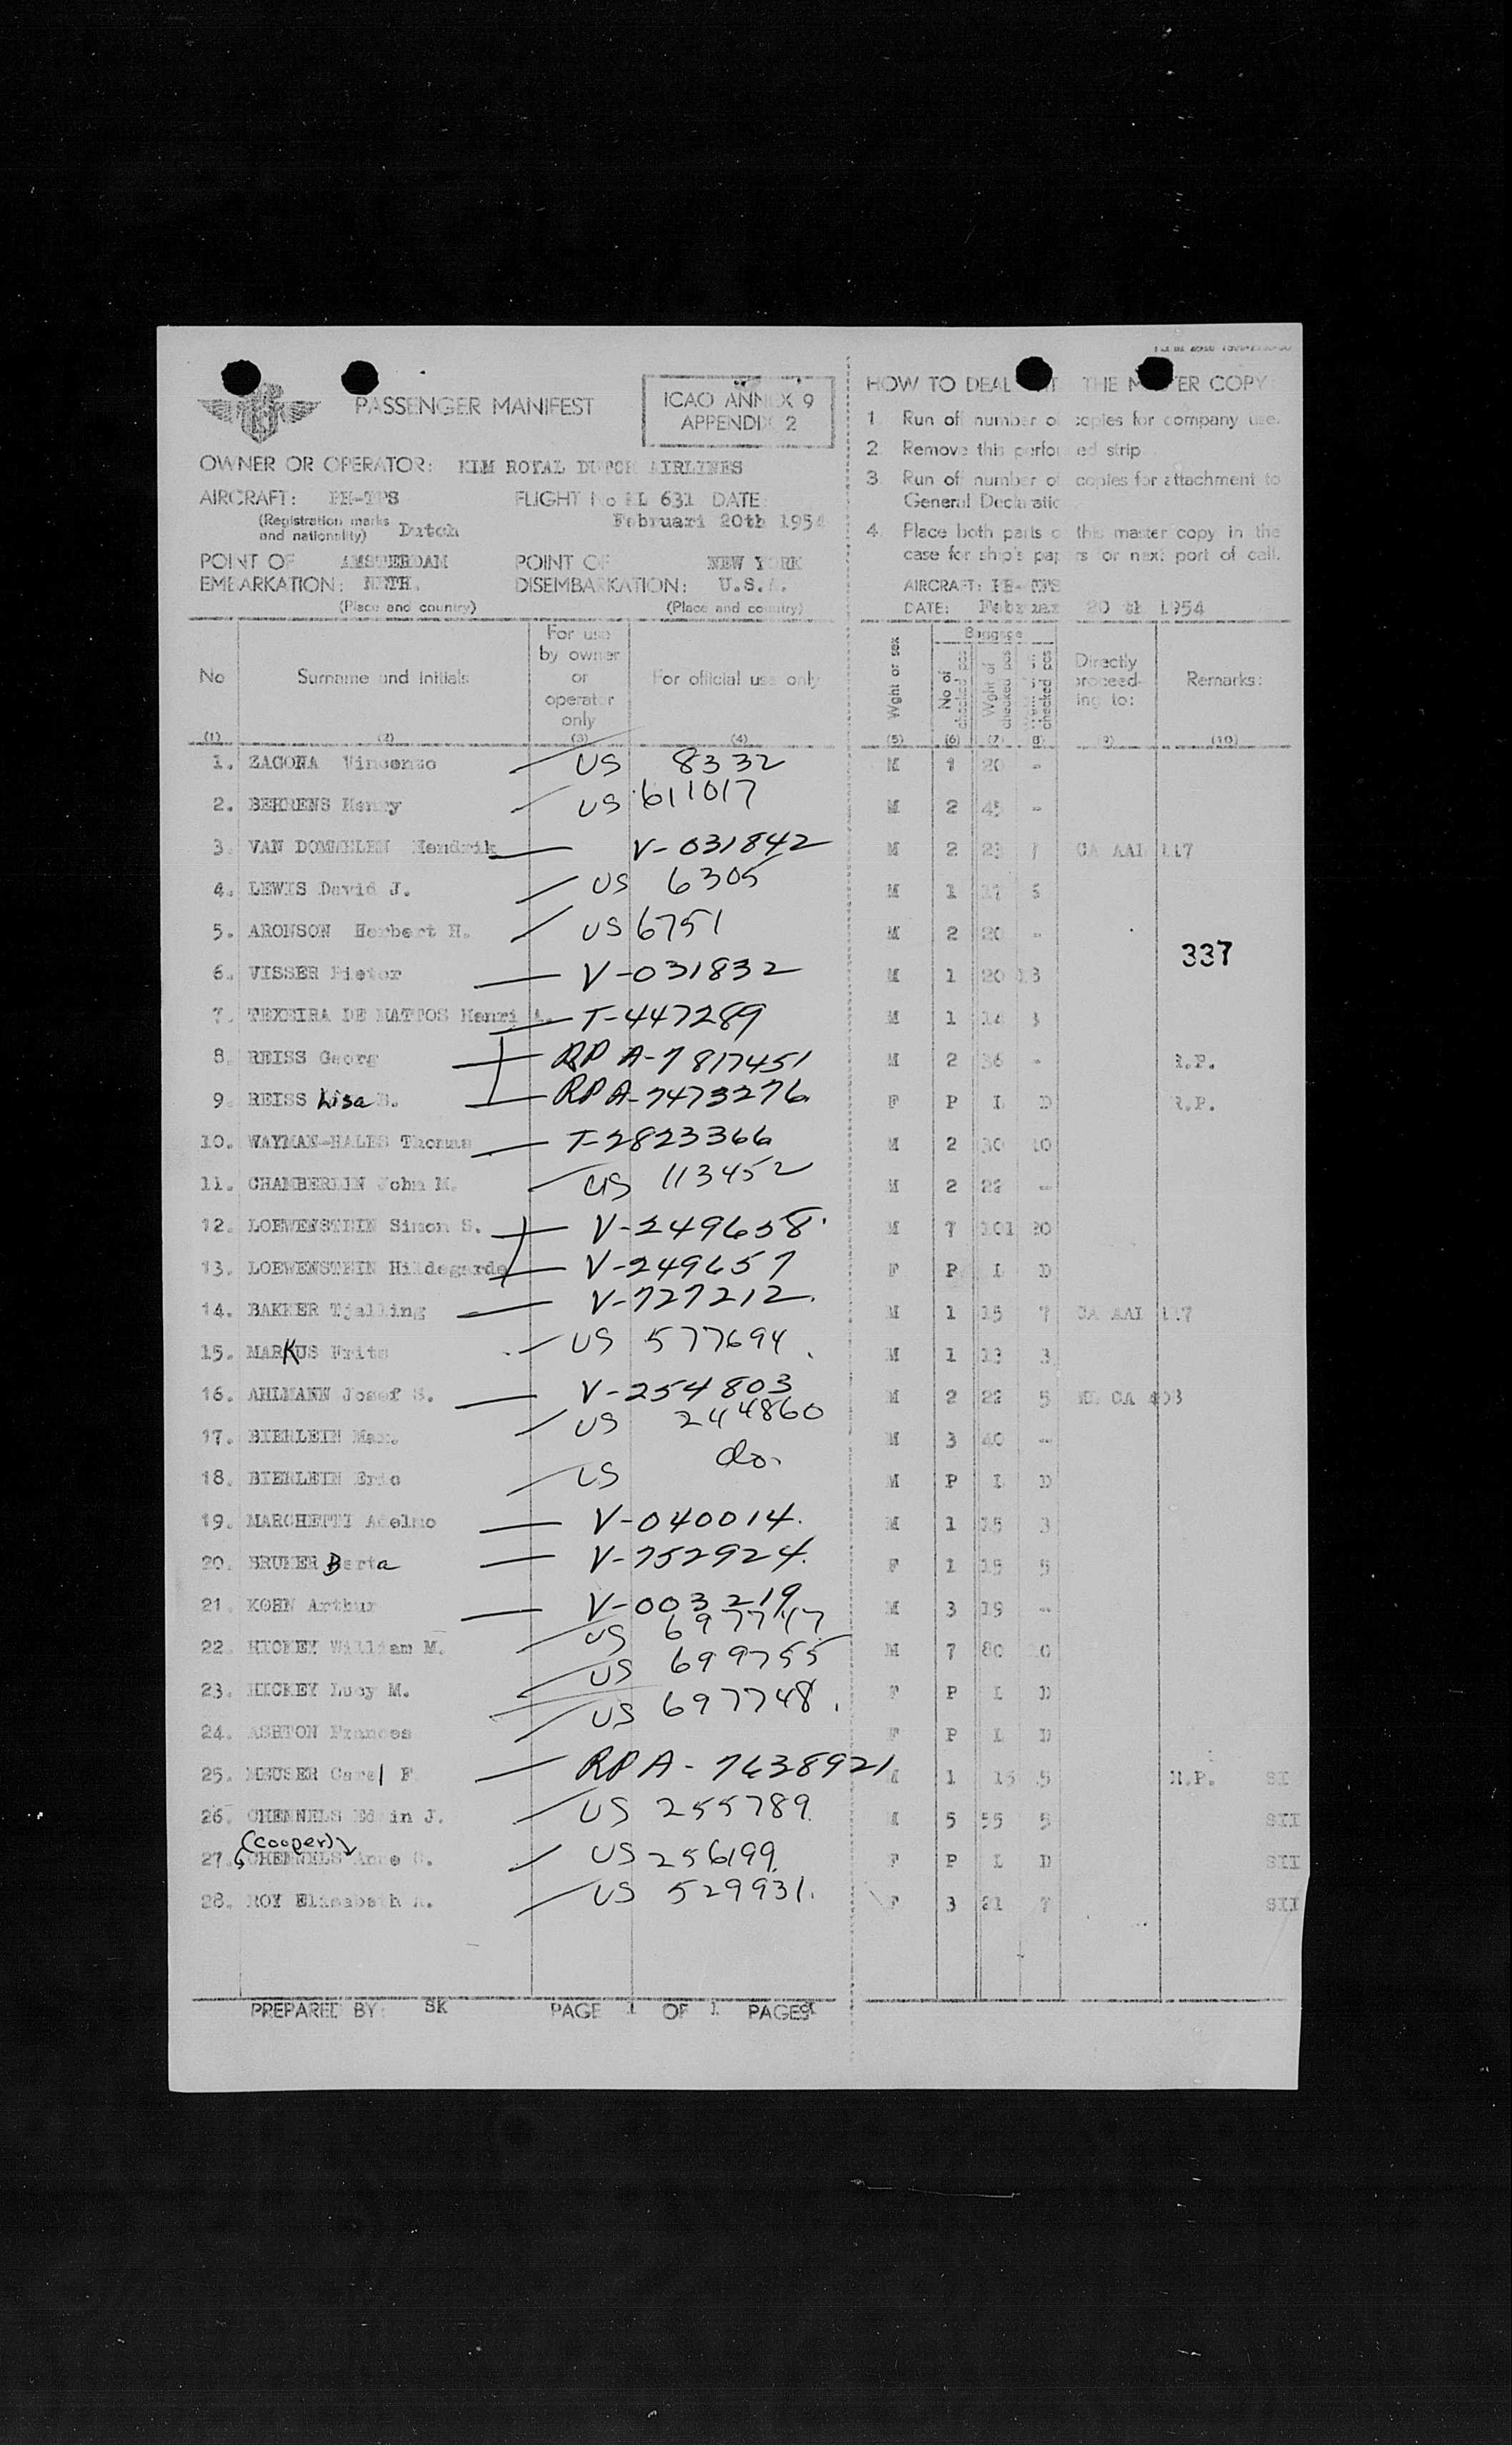 PASSENGER MANIFEST
ICAO ANNEX 9
APPENDIX 2
OWNER OR OPERATOR: KLM ROYAL DUTCH AIRLINES
AIRCRAFT: PH-TPS
FLIGHT No KL 631 DATE:
(Registration marks and nationality) Dutch
Februari 20th 1954
POINT OF EMBARKATION: AMSTERDAM NETH.
(Place and country)
POINT OF DISEMBARKATION: NEW YORK U.S.A.
(Place and country)
HOW TO DEAL THE MASTER COPY
1. Run off number of copies for company use.
2. Remove this perforated strip
3. Run off number of copies for attachment to
General Declaratic
4. Place both parts of this master copy in the
case for ship's papers for next port of call.
AIRCRAFT: PH-TPS
DATE: Februar 20 th 1954
No (1)
Surname and initials (2)
For use by owner or operator only (3)
For official use only (4)
Wght or sex (5)
Baggage
No of checked pcs (6)
Wght of checked pcs (7)
checked pcs (8)
Directly proceed- ing to: (9)
Remarks: (10)
1. ZAGONA Vincenzo US 8332 M 1 20 -
2. BEHRENS Henry US 611017 M 2 45 -
3. VAN DOMMELEN Hendrik V-031842 M 2 23 CA AAI 117
4. LEWIS David J. US 6305 M 1 17 5
5. ARONSON Herbert H. US 6751 M 2 20 -
337
6. VISSER Pieter V-031832 M 1 20 13
7. TEXEIRA DE MATTOS Henri A. T-447289 M 1 14 3
8. REISS Georg RP A-7817451 M 2 36 - R.P.
9. REISS Lisa B. RP A-7473276 F P L D R.P.
10. WAYMAN-HALES Thomas T-2823366 M 2 30 10
11. CHAMBERLIN John M. US 113452 M 2 22 -
12. LOEWENSTEIN Simon S. V-249658 M 7 101 20
13. LOEWENSTEIN Hildegarde V-249657 F P L D
14. BAKKER Tjalling V-727212. M 1 15 7 CA AAI 117
15. MARKUS Frits US 577694. M 1 13 3
16. AHLMANN Josef S. V-254803 M 2 22 5 CA 403
17. BIERLEIN Max. US 244860 M 3 40 -
18. BIERLEIN Eric US do. M P L D
19. MARCHETTI Adelmo V-040014. M 1 15 3
20. BRUNER Berta V-752924. F 1 15 5
21. KOHN Arthur V-003219 M 3 19 -
22. HICKEY William M. US 697747 M 7 80 10
23. HICKEY Lucy M. US 699755 F P L D
24. ASHTON Frances US 697748. F P L D
25. MEUSER Carel F RPA-7638921 M 1 15 5 R.P. SI
26. CHENNELS Edwin J. US 255789. M 5 55 5 SII
(Cooper)
27. CHENNELS Anne C. US 256199 F P L D SII
28. ROY Elisabeth A. US 529931. F 3 21 7 SII
PREPARED BY: SK PAGE 1 OF 1 PAGES